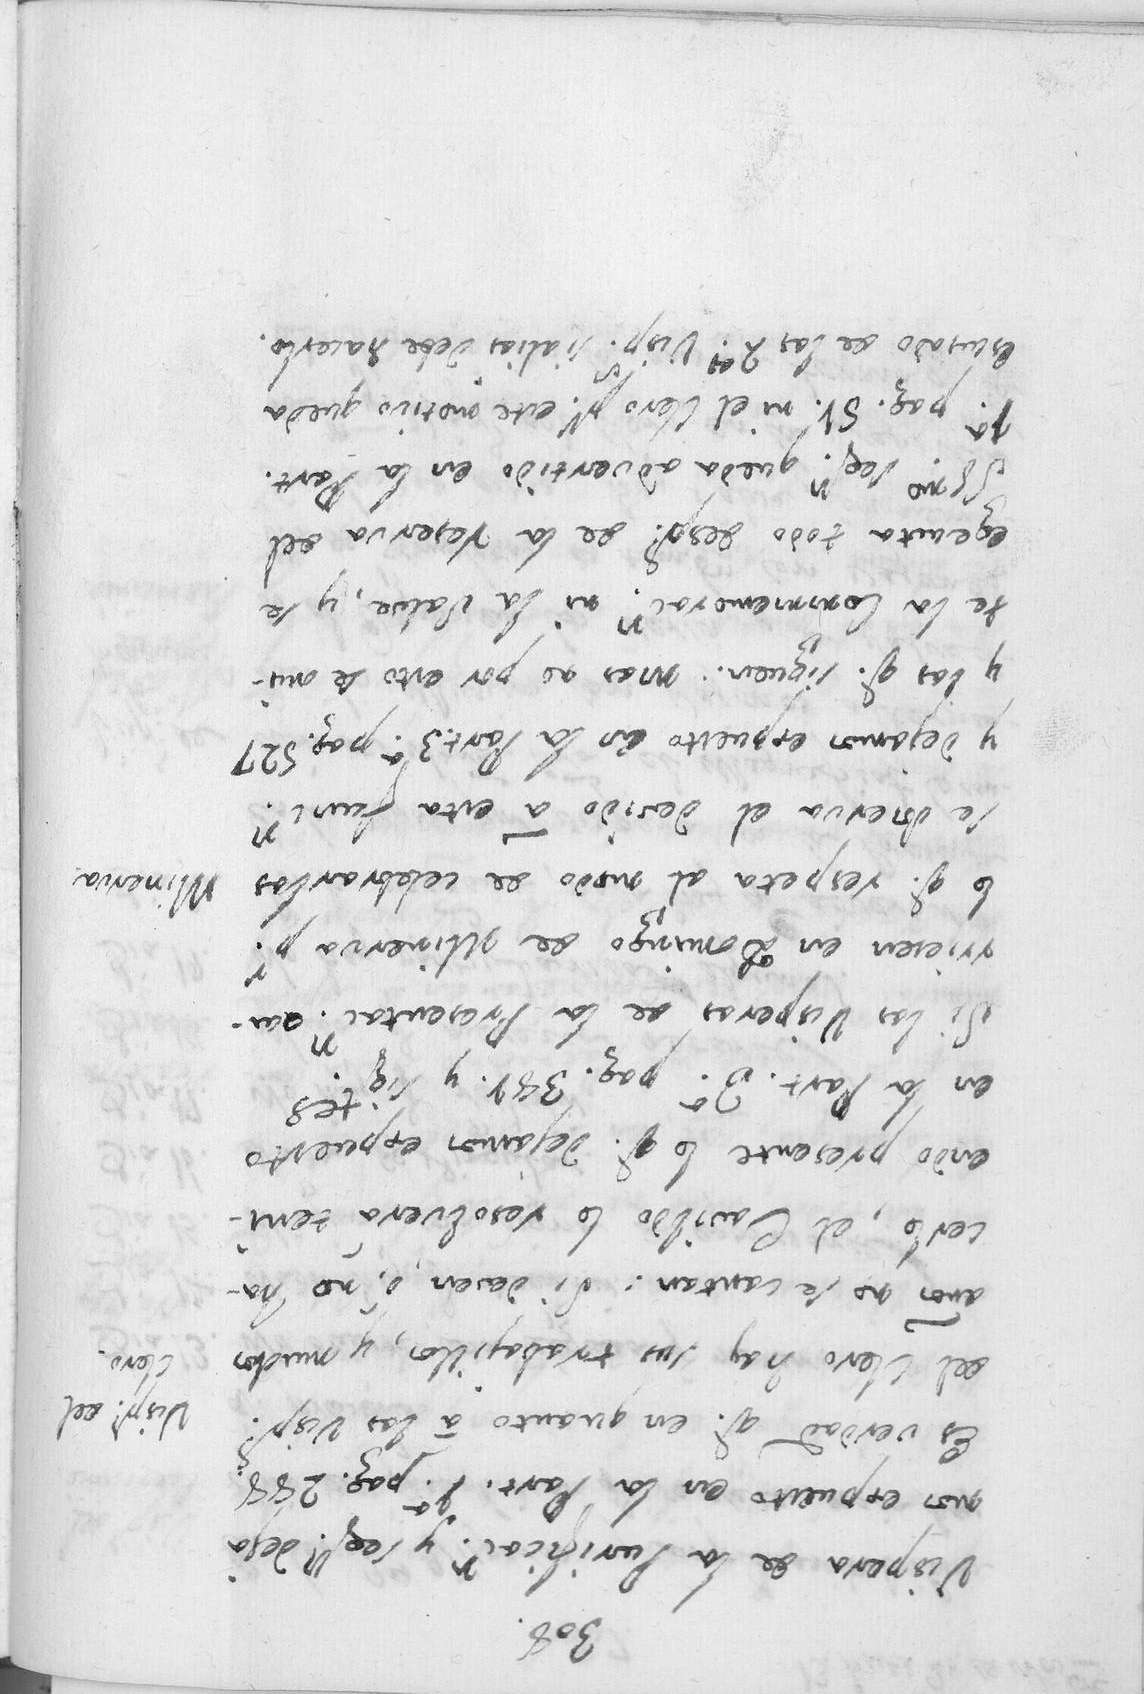 308.
Vispera de la Purificac.n y seg.n deja
mos espuesto en la Part. 1.a pag. 288.
Es verdad q.e en quanto â las Visp.s
del Clero hay sus trabajillos, y muchos
años no se cantan: Si dasen, ó, no ha-
cerlo, el Cavildo lo resolvera teni-
endo presente lo q.e dejamos espuesto
en la Part. 3.a pag. 381. y sig.tes
Si las Visperas de la Presentac.n cai-
rriesen en Domingo de Minerva p.r
lo q.e respeta al modo de celebrarlos
se observa el devido â esta func.n
y dejamos espuesto en la Part. 3.a pag. 527
y las q.e siguen: mas no por esto se omi-
te la Commemorac.n ni la Salve, y se
egecuta todo desp.s de la reserva del
SSmo seg.n queda advertido en la Part.
1.a pag. 51. ni el Clero p.r este motivo queda
escusado de las 2.as Visp.s si alias debe hacerlo.
Visp.s del
Clero.
Minerva.